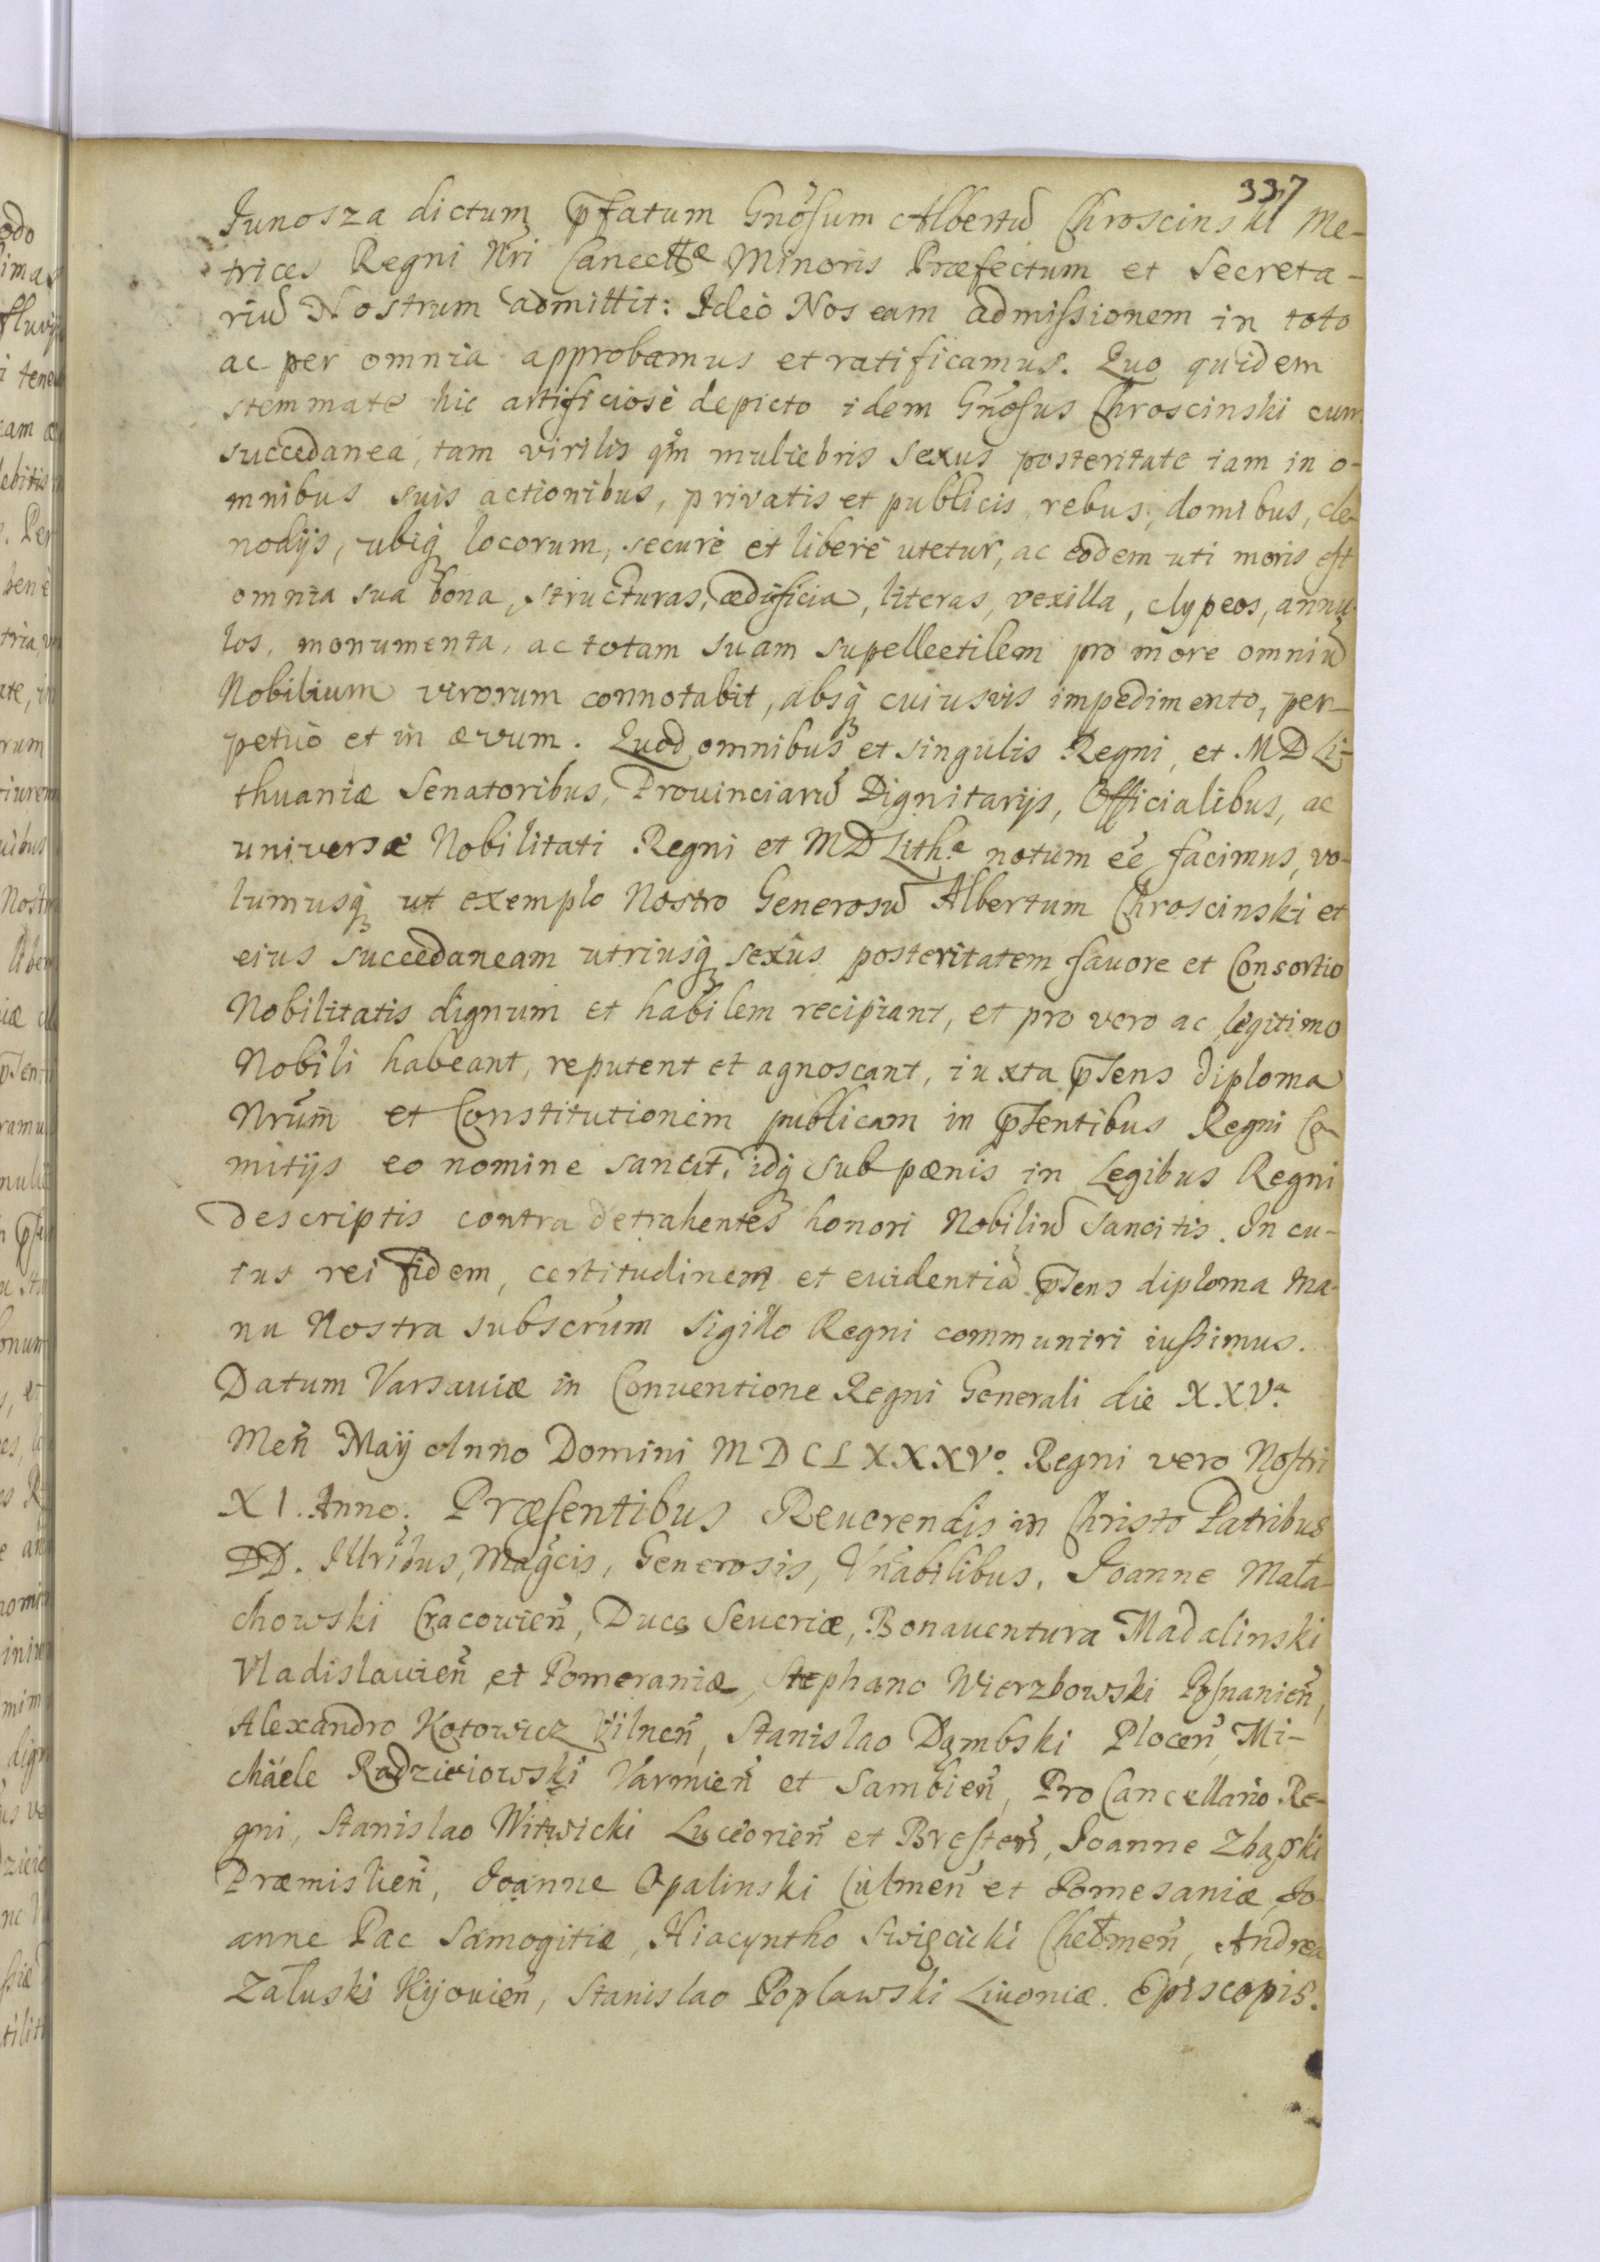 337
Junosza dictum p̄fatum Gn̄osum Albertū Chroscinski Me-
trices Regni Nri Cancellæ Minoris Præfectum et Secreta-
riū Nostrum admittit: Ideò Nos eam admissionem in toto
ac per omnia approbamus et ratificamus. Quo quidem
stemmate hic artificiosè depicto idem Gn̄osus Chroscinski cum
succedanea, tam virilis qm̄ muliebris sexus posteritate iam in o-
mnibus suis actionibus, privatis et publicis, rebus, domibus, cle-
nodijs, ubiq̨ locorum, securè et liberè utetur, ac eodem uti moris est
omnia sua bona, structuras, ædificia, literas, vexilla, clypeos, annu-
los, monumenta, ac totam suam supellectilem pro more omniū
Nobilium virorum connotabit, absq̨ cuiusvis impedimento, per-
petuò et in ævum. Quod omnibus et singulis Regni, et MD Li-
thuaniæ Senatoribus, Provinciarū Dignitarijs, Officialibus, ac
universæ Nobilitati Regni et MD Lith.æ notum eē facimus, vo-
lumusq̨ ut exemplo Nostro Generosū Albertum Chroscinski et
eius succedaneam utriusq̨ sexûs posteritatem favore et Consortio
Nobilitatis dignum et habilem recipiant, et pro vero ac legitimo
Nobili habeant, reputent et agnoscant, iuxta p̄sens diploma
Nrūm et Constitutionem publicam in p̄sentibus Regni Co-
mitijs eo nomine sancit. idq̨ sub pænis in Legibus Regni
descriptis contra detrahentes honori Nobiliū sancitis. In cu-
ius rei fidem, certitudinem et evidentiā p̄sens diploma Ma-
nu Nostra subscrūm Sigillo Regni communiri iussimus.
Datum Varsauiæ in Conventione Regni Generali die XXV.ª
Men̄ Maÿ Anno Domini MDCLXXXVº. Regni vero Nostri
XI. Anno. Præsentibus Reuerendis in Christo Patribus
DD. Illr̄ibus, Magcis, Generosis, Vn̄abilibus, Joanne Mała-
chowski Cracovien̄, Duce Seueriæ, Bonauentura Madalinski
Vladislauien̄ et Pomeraniæ, Stephano Wierzbowski Posnanien̄,
Alexandro Kotowicz Vilnen̄, Stanislao Dąmbski Plocen̄, Mi-
chäele Radzieiowski Varmien̄ et Sambien̄, Pro Cancellario Re-
gni, Stanislao Witwicki Luceorien̄ et Bresten̄, Joanne Zbąski
Præmislien̄, Joanne Opalinski Culmen̄ et Pomesaniæ, Jo-
anne Pac Samogitiæ, Hiacyntho Swięcicki Chełmen̄, Andrea
Załuski Kijouien̄, Stanislao Poplawski Liuoniæ. Episcopis.